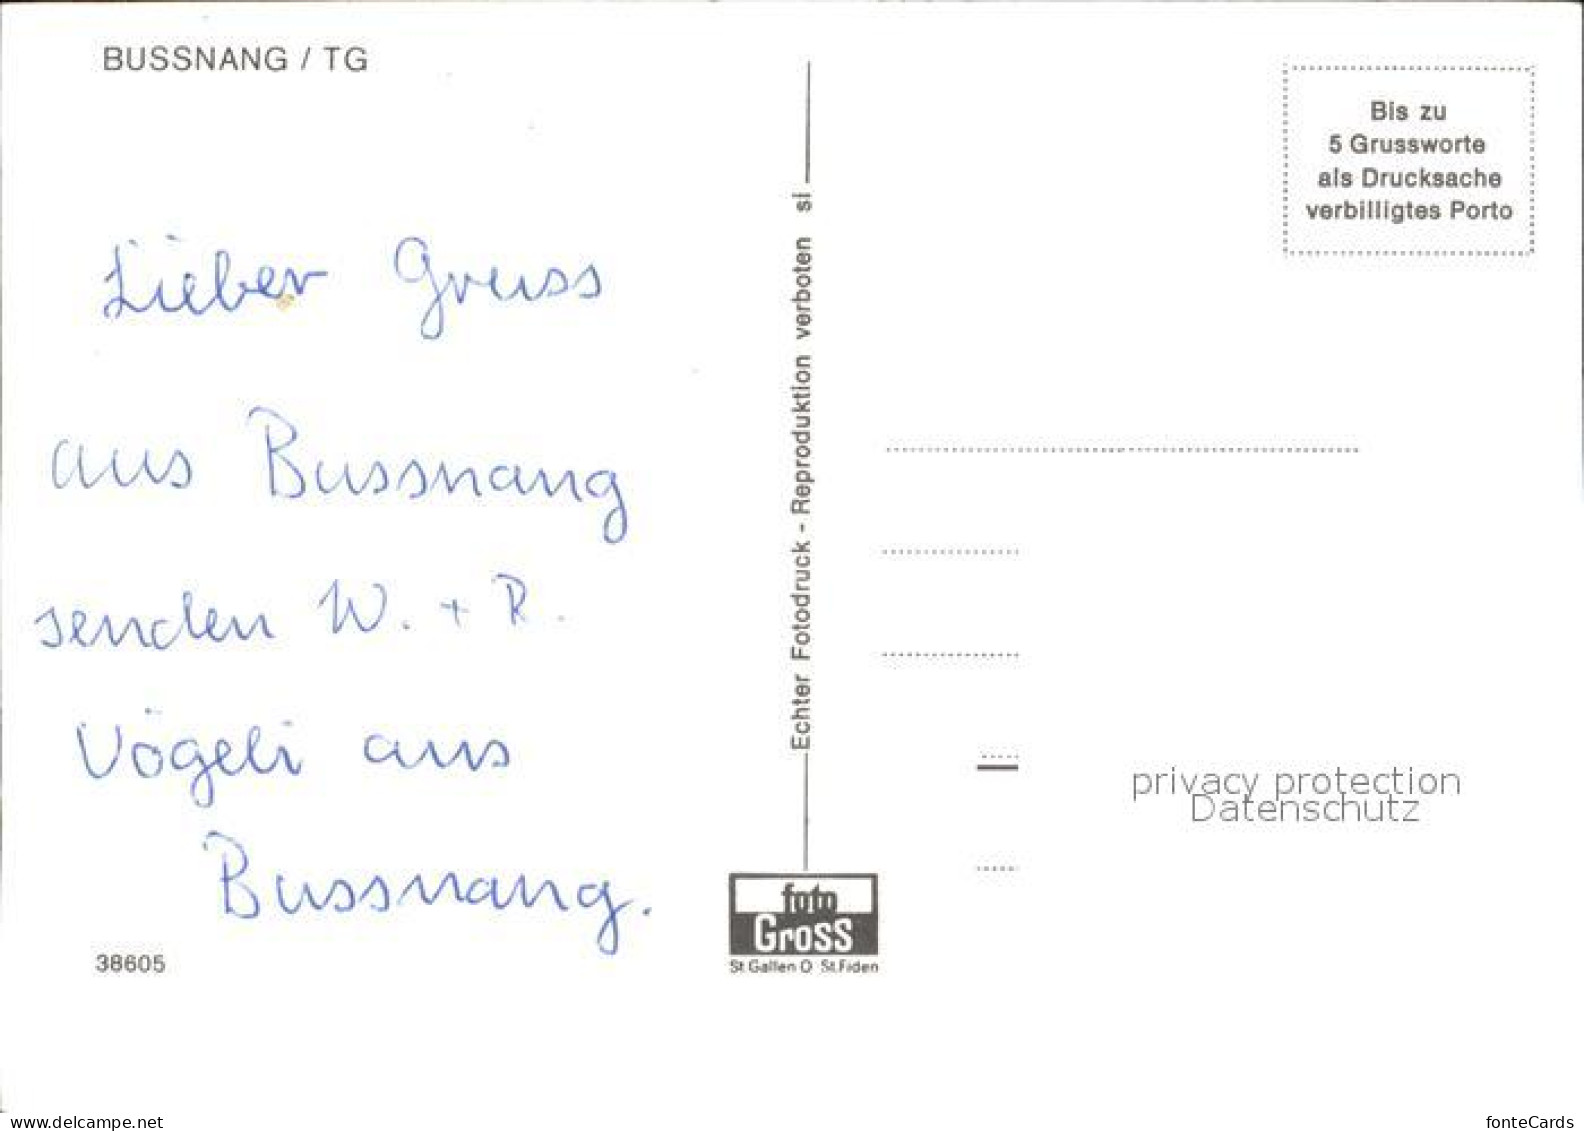 BUSSNANG / TG
Lieber Gruss
aus Bussnang
senden W. + R.
Vögeli aus
Bussnang.
38605
Echter Fotodruck - Reproduktion verboten si
foto
Gross
St.Gallen O St.Fiden
Bis zu
5 Grussworte
als Drucksache
verbilligtes Porto
privacy protection
Datenschutz
www.delcampe.net
fonteCards